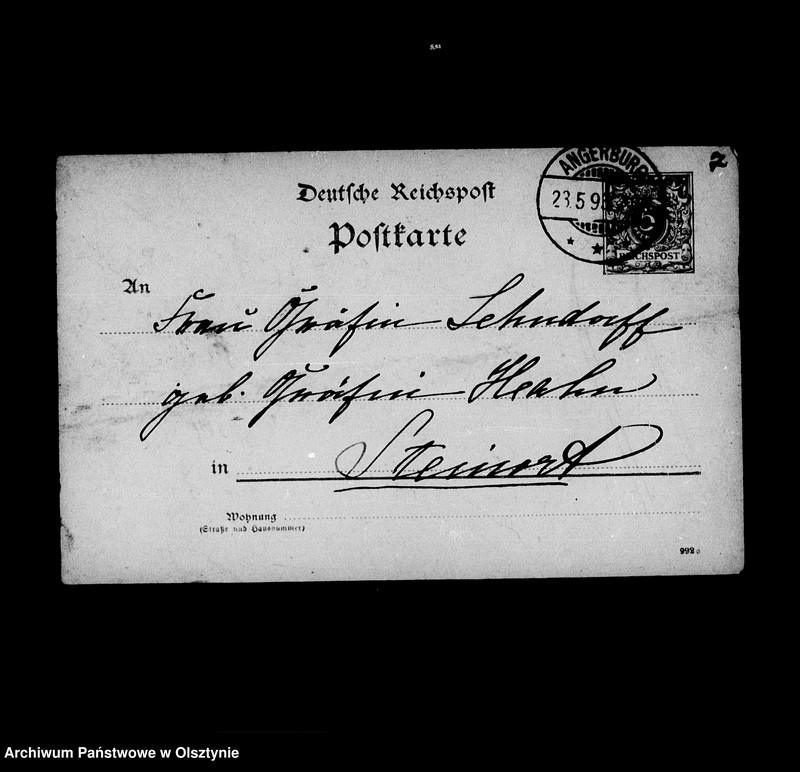 2
ANGERBURG
23.5.9
5
REICHSPOST
Deutsche Reichspost
Postkarte
An
Frau Gräfin Lehndorff
geb. Gräfin Hahn
in Steinort
Wohnung
(Straße und Hausnummer)
992
Archiwum Państwowe w Olsztynie